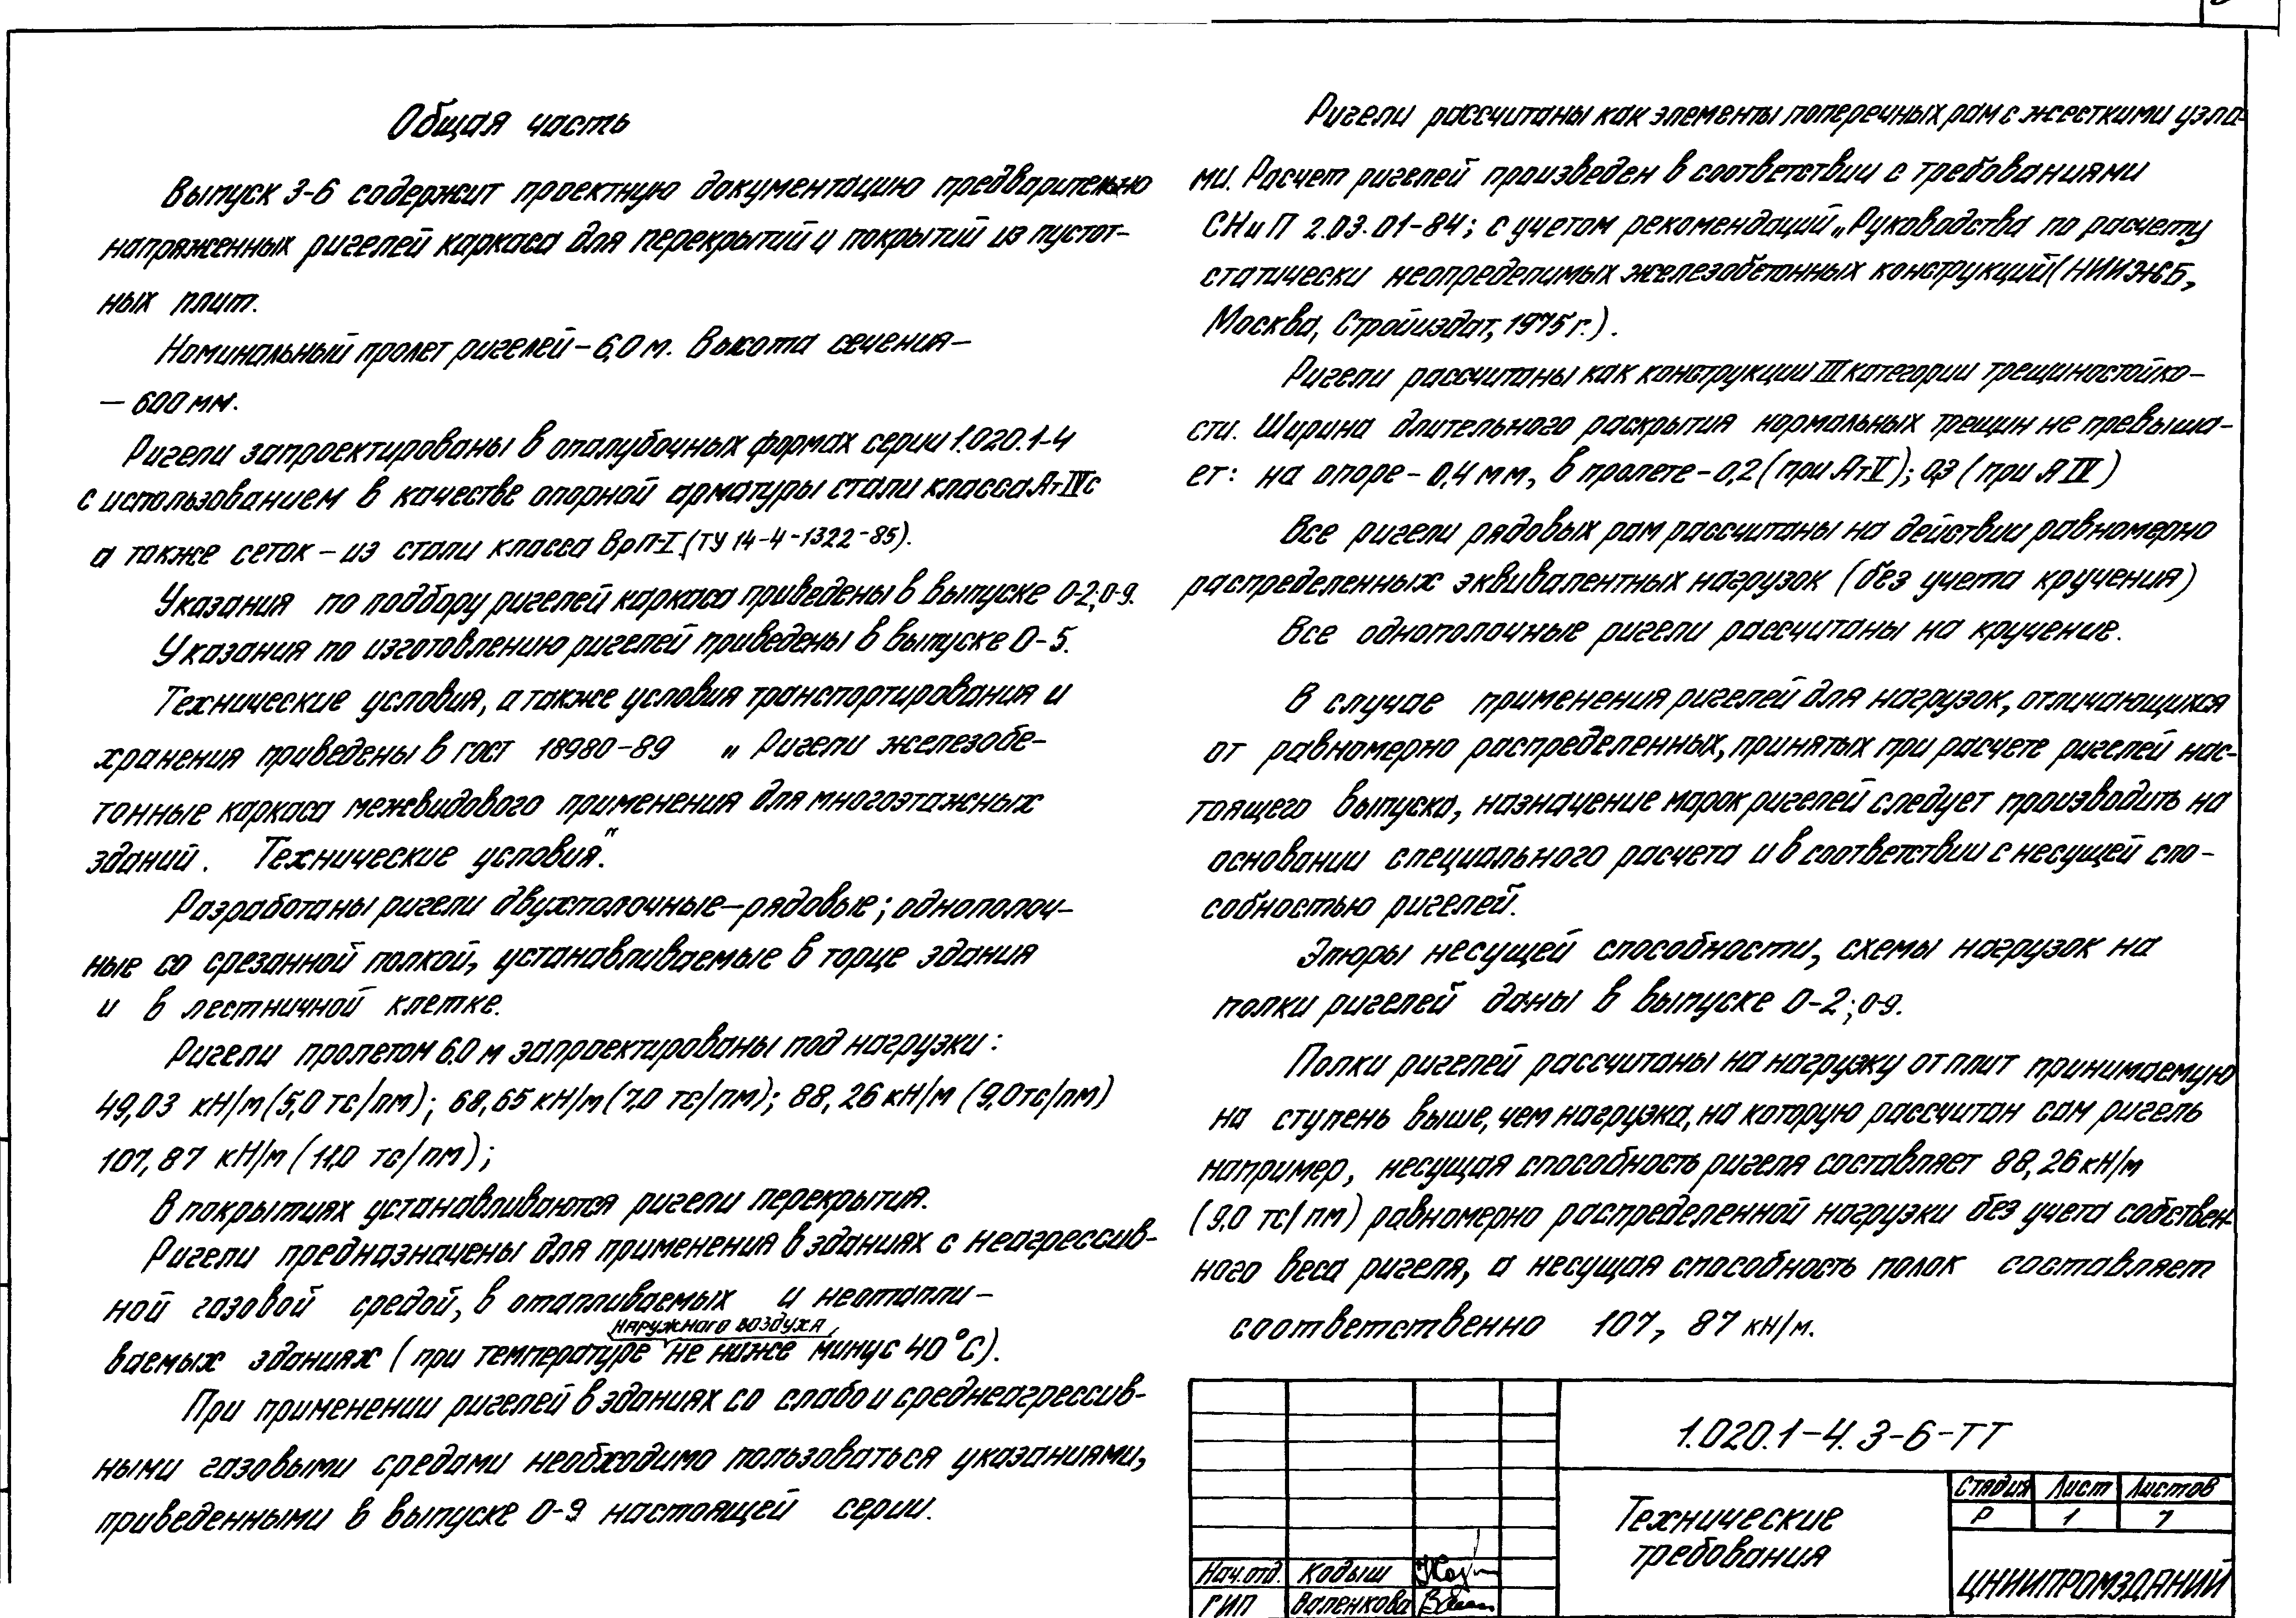 Общая часть
Выпуск 3-6 содержит проектную документацию предварительно
напряженных ригелей каркаса для перекрытий и покрытий из пустот-
ных плит.
Номинальный пролет ригелей - 6,0 м. Высота сечения -
- 600 мм.
Ригели запроектированы в опалубочных формах серии 1.020.1-4
с использованием в качестве опорной арматуры стали класса Ат IVс
а также сеток - из стали класса ВрП-I (ТУ 14-4-1322-85).
Указания по подбору ригелей каркаса приведены в выпуске 0-2; 0-9.
Указания по изготовлению ригелей приведены в выпуске 0-5.
Технические условия, а также условия транспортирования и
хранения приведены в гост 18980-89 „ Ригели железобе-
тонные каркаса межвидового применения для многоэтажных
зданий. Технические условия".
Разработаны ригели двухполочные-рядовые; однополоч-
ные со срезанной полкой, устанавливаемые в торце здания
и в лестничной клетке.
Ригели пролетом 6.0 м запроектированы под нагрузки:
49,03 кН/м (5,0 тс/пм); 68,65 кН/м (7,0 тс/пм); 88,26 кН/м (9,0 тс/пм)
107,87 кН/м (11,0 тс/пм);
В покрытиях устанавливаются ригели перекрытия.
Ригели предназначены для применения в зданиях с неагрессив-
ной газовой средой, в отапливаемых и неотапли-
наружного воздуха
ваемых зданиях (при температуре не ниже минус 40°С).
При применении ригелей в зданиях со слабо и среднеагрессив-
ными газовыми средами необходимо пользоваться указаниями,
приведенными в выпуске 0-9 настоящей серии.
Ригели рассчитаны как элементы поперечных рам с жесткими узла-
ми. Расчет ригелей произведен в соответствии с требованиями
СНиП 2.03.01-84; с учетом рекомендаций „Руководства по расчету
статически неопределимых железобетонных конструкций (НИИЖБ,
Москва, Стройиздат, 1975 г.).
Ригели рассчитаны как конструкции III категории трещиностойко-
сти. Ширина длительного раскрытия нормальных трещин не превыша-
ет: на опоре - 0,4 мм, в пролете - 0,2 (при Ат V); 0,3 (при А IV)
Все ригели рядовых рам рассчитаны на действии равномерно
распределенных эквивалентных нагрузок (без учета кручения)
Все однополочные ригели рассчитаны на кручение.
В случае применения ригелей для нагрузок, отличающихся
от равномерно распределенных, принятых при расчете ригелей нас-
тоящего выпуска, назначение марок ригелей следует производить на
основании специального расчета и в соответствии с несущей спо-
собностью ригелей.
Эпюры несущей способности, схемы нагрузок на
полки ригелей даны в выпуске 0-2; 0-9.
Полки ригелей рассчитаны на нагрузку от плит принимаемую
на ступень выше, чем нагрузка, на которую рассчитан сам ригель
например, несущая способность ригеля составляет 88,26 кН/м
(9,0 тс/пм) равномерно распределенной нагрузки без учета собствен-
ного веса ригеля, а несущая способность полок составляет
соответственно 107,87 кН/м.
1.020.1-4. 3-6-ТТ
Технические
требования
Стадия Лист Листов
Р 1 7
ЦНИИПРОМЗДАНИЙ
Нач.отд. Кодыш
ГИПВаленкова